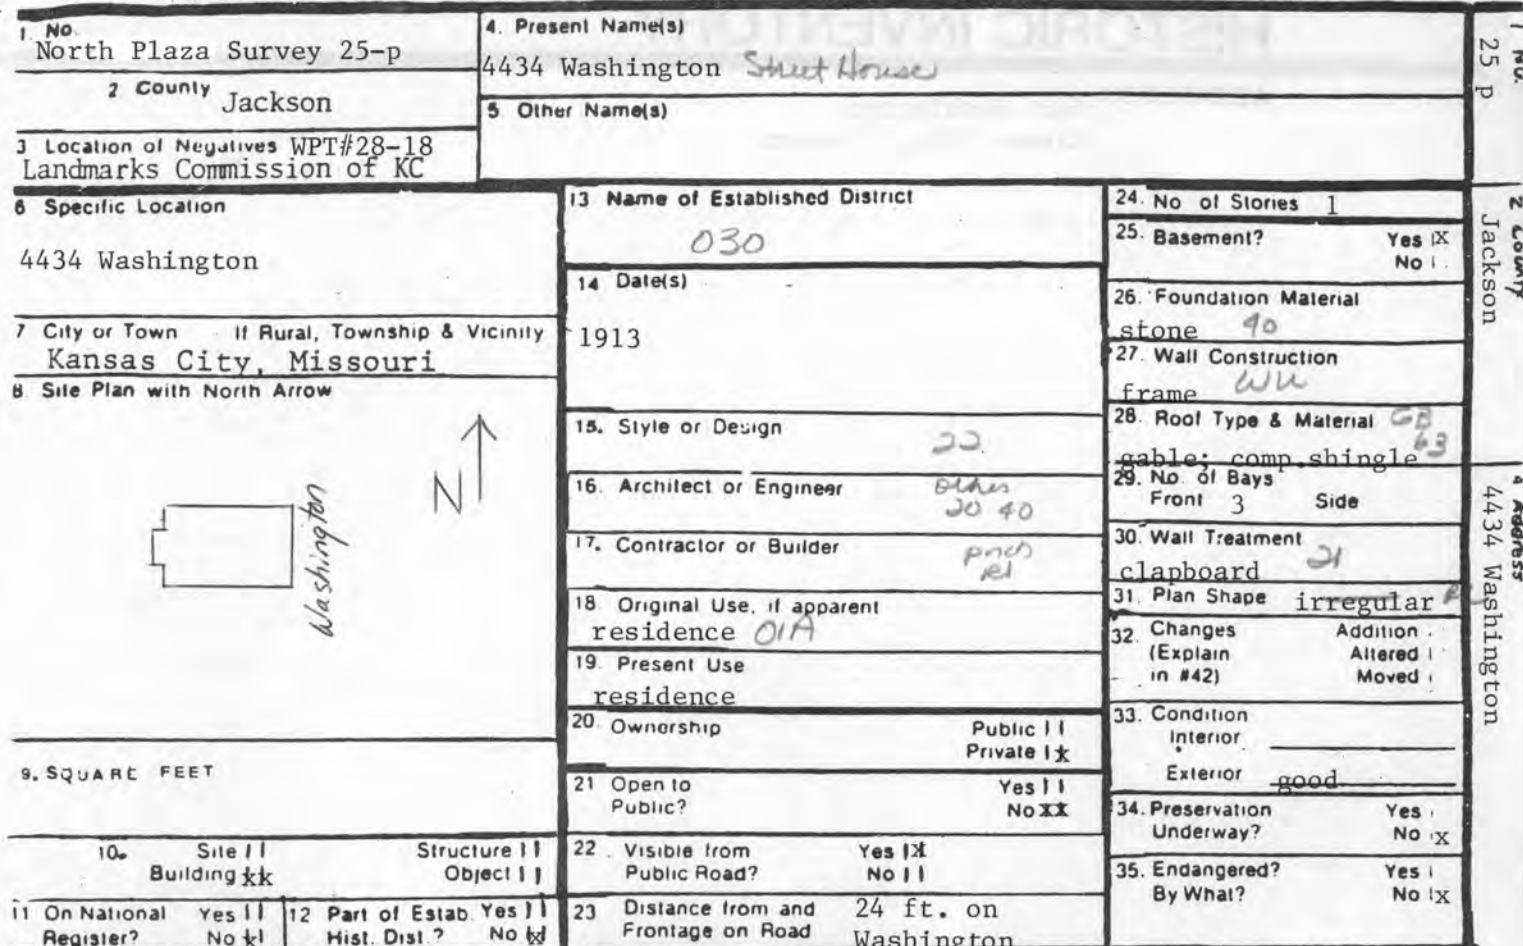 1. No.
North Plaza Survey 25-p
2 County Jackson
3 Location of Negatives WPT#28-18
Landmarks Commission of KC
4. Present Name(s)
4434 Washington Street House
5. Other Name(s)
6 Specific Location
4434 Washington
7 City or Town If Rural, Township & Vicinity
Kansas City, Missouri
8. Site Plan with North Arrow
N
Washington
9. SQUARE FEET
10. Site | | Structure | |
Building xx Object | |
11 On National Yes | |
Register? No x|
12 Part of Estab. Yes | |
Hist. Dist.? No |x|
13 Name of Established District
030
14 Date(s)
1913
15. Style or Design
22
16. Architect or Engineer
20 40
17. Contractor or Builder
18. Original Use, if apparent
residence 01A
19. Present Use
residence
20. Ownership Public | |
Private | x
21 Open to Yes | |
Public? No XX
22. Visible from Yes |X|
Public Road? No | |
23 Distance from and 24 ft. on
Frontage on Road Washington
24. No of Stories 1
25. Basement? Yes |X
No |
26. Foundation Material
stone 40
27. Wall Construction
frame
28. Roof Type & Material GB
63
gable; comp.shingle
29. No. of Bays
Front 3 Side
30. Wall Treatment
21
clapboard
31. Plan Shape irregular
32. Changes Addition
(Explain Altered |
in #42) Moved |
33. Condition
Interior
Exterior good
34. Preservation Yes |
Underway? No |X
35. Endangered? Yes |
By What? No |X
1 No.
25 p
2 County
Jackson
4 Address
4434 Washington
HISTORIC INVENTORY